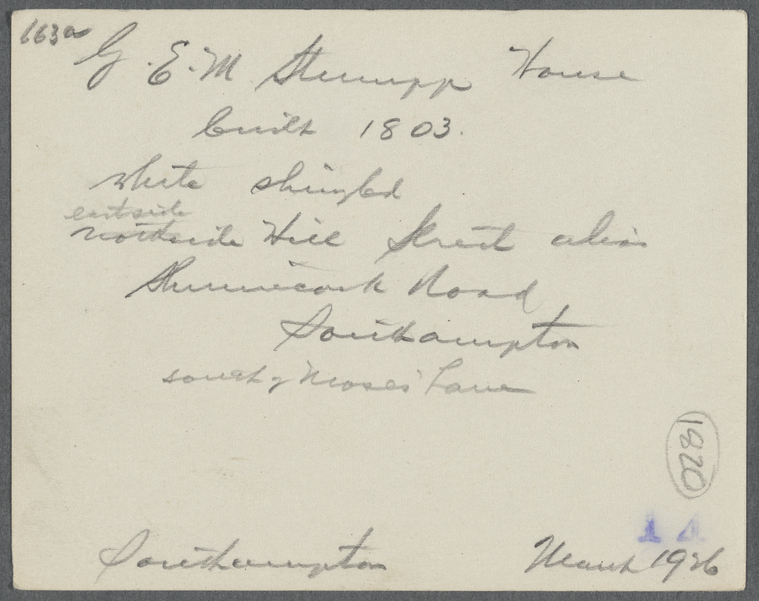 163a
G. E. M. Stumpp House
built 1803.
white shingled
eastside
northside Hill Street alias
Shinnecock Road
Southampton
south of Moses Lane
1820
Southampton March 1926